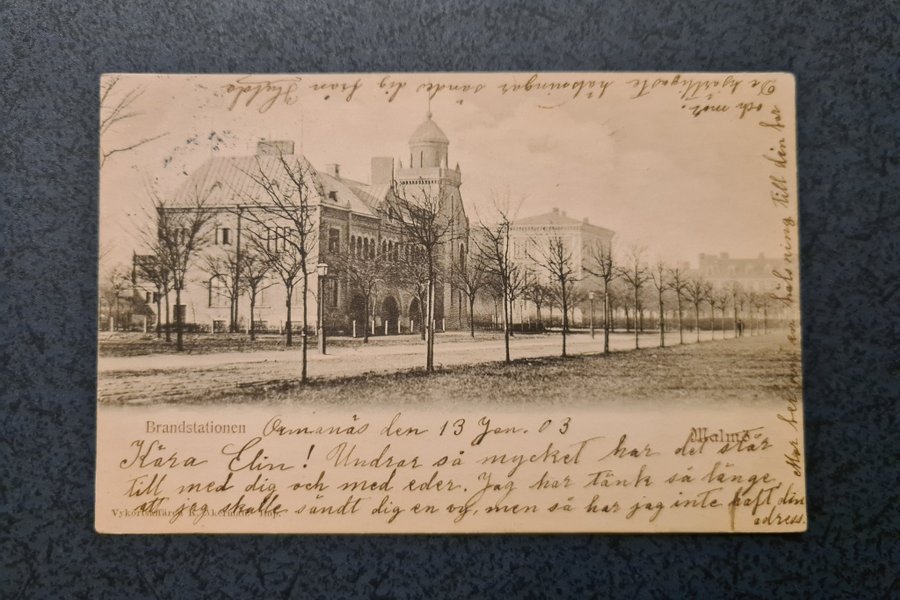 Brandstationen
Malmö
Ormanäs den 13 Jan. 03
Kära Elin! Undrar så mycket har det står
till med dig och med eder. Jag har tänk så länge
att jag skulle sändt dig en vy, men så har jag inte haft din
adress.
har hälsning till din har
De hjärtligaste hälsningar sändes dig från Hulda
och mor.